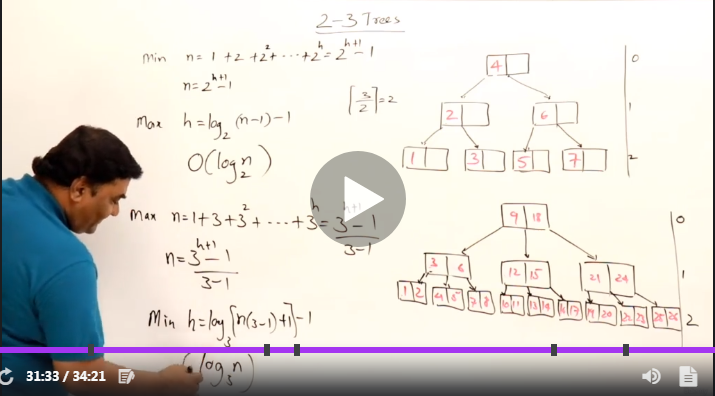 2-3 Trees
Min n = 1 + 2 + 2² + ⋯ + 2^h = 2^(h+1) - 1
n = 2^(h+1) - 1
⌈3/2⌉ = 2
Max h = log₂(n-1) - 1
O(log₂n)
4
2 6
1 3 5 7
0
1
2
Max n = 1 + 3 + 3² + ⋯ + 3^h = (3^(h+1) - 1)/(3 - 1)
n = (3^(h+1) - 1)/(3 - 1)
Min h = log₃[n(3-1)+1] - 1
log₃n)
9 18
3 6 12 15 21 24
1 2 4 5 7 8 10 11 13 14 16 17 19 20 22 23 25 26
0
1
2
31:33 / 34:21